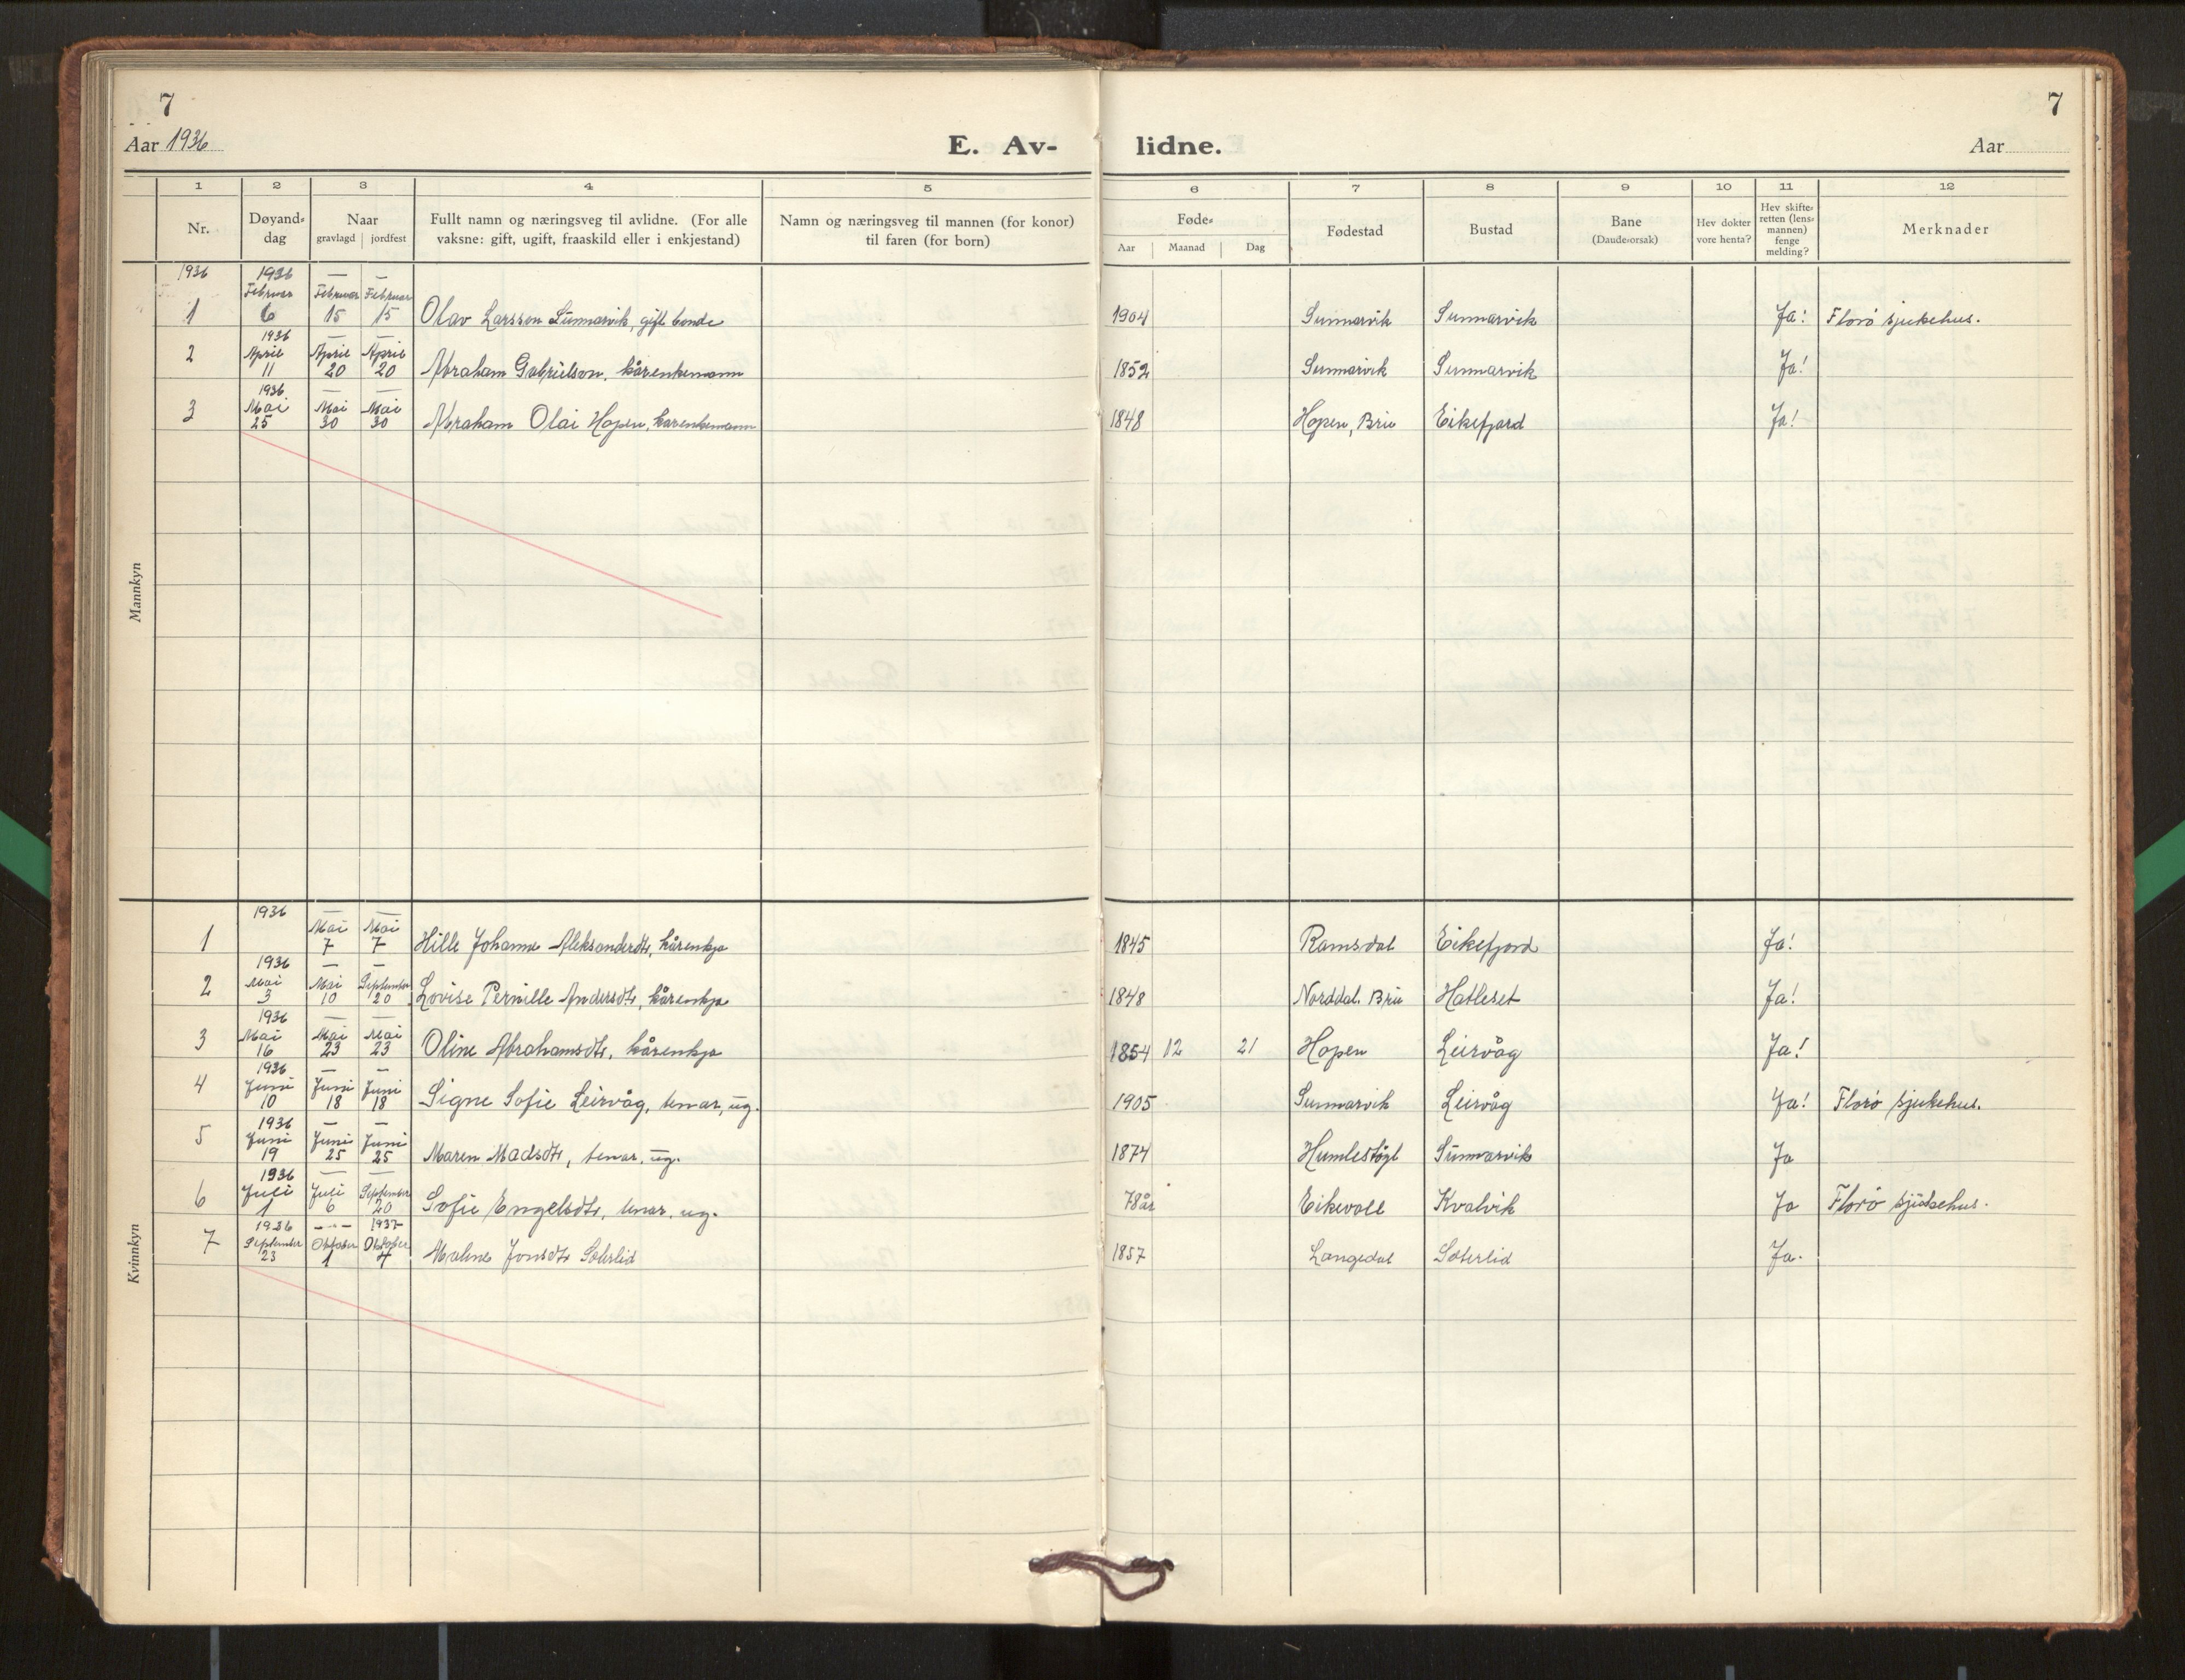 7
7
Aar 1936
E. Av-
lidne.
Aar
1 2 3 4 5 6 7 8 9 10 11 12
Nr.
Døyand-
dag
Naar
gravlagd | jordfest
Fullt namn og næringsveg til avlidne. (For alle
vaksne: gift, ugift, fraaskild eller i enkjestand)
Namn og næringsveg til mannen (for konor)
til faren (for born)
Føde-
Aar Maanad Dag
Fødestad
Bustad
Bane
(Daudeorsak)
Hev dokter
vore henta?
Hev skifte-
retten (lens-
mannen)
fenge
melding?
Merknader
Mannkyn
1936 1936 — —
Februar Februar Februar
1 6 15 15 Olav Larsson Sunnarvik, gift bonde 1904 Sunnarvik Sunnarvik Ja! Florø sjukehus.
1936 — —
2 April April April
11 20 20 Abraham Gabrielson, kårenkemann 1852 Sunnarvik Sunnarvik Ja!
1936 — —
3 Mai Mai Mai
25 30 30 Abraham Olai Hopen, kårenkemann 1848 Hopen, Bru Eikefjord Ja!
Kvinnkyn
1936 — —
Mai Mai
1 7 7 Hille Johanne Aleksanderdtr, kårenkja 1845 Ramsdal Eikefjord Ja!
1936 — —
2 Mai Mai September
3 10 20 Lovise Pernille Andersdtr, kårenkja 1848 Norddal. Bru Hatleset Ja!
1936 — —
3 Mai Mai Mai
16 23 23 Oline Abrahamsdtr, kårenkja 1854 12 21 Hopen Leirvåg Ja!
1936 — —
4 Juni Juni Juni
10 18 18 Signe Sofie Leirvåg, tenar, ug. 1905 Sunnarvik Leirvåg Ja! Florø sjukehus.
1936 — —
5 Juni Juni Juni
19 25 25 Maren Madsdtr, tenar, ug. 1874 Humlestøyl Sunnarvik Ja
1936 — —
6 Juli Juli September
1 6 20 Sofie Engelsdtr, tenar, ug. 78 år Eikevoll Kvalvik Ja Florø sjukehus.
1936 — 1937
7 September Oktober Oktober
23 1 4 Malene Jonsdtr Sæterlid 1857 Langedal Sæterlid Ja.